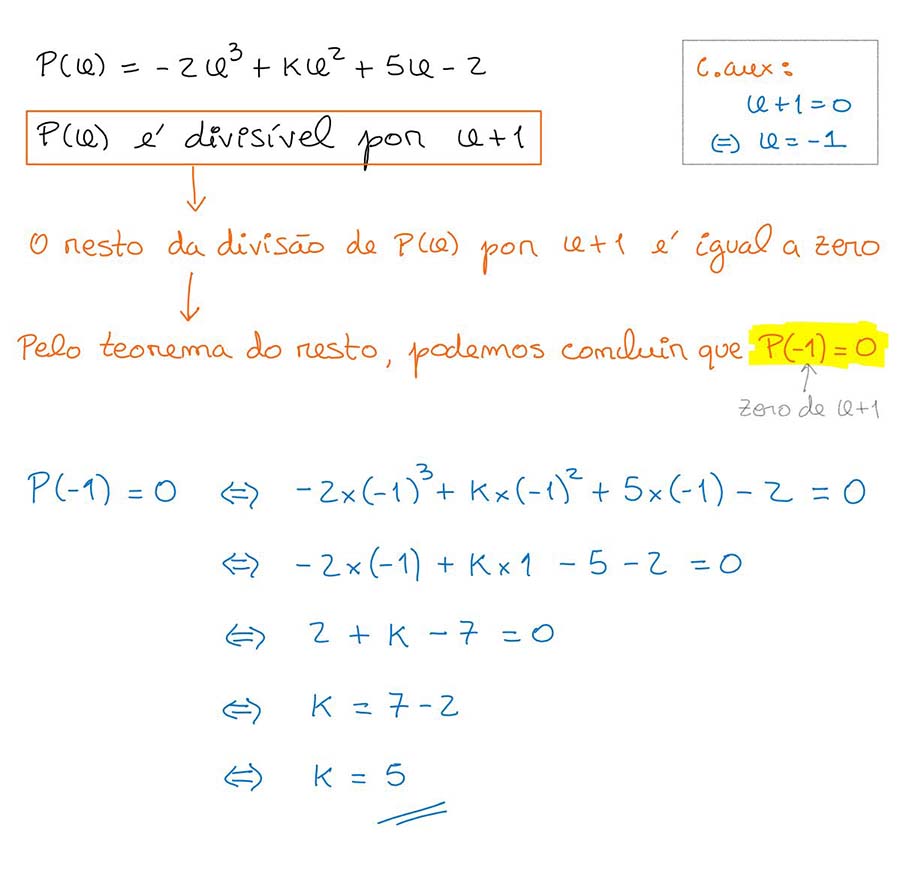 P(x) = -2x³ + Kx² + 5x - 2
C.aux:
x+1=0
(=) x=-1
P(x) é divisível por x+1
O resto da divisão de P(x) por x+1 é igual a zero
Pelo teorema do resto, podemos concluir que P(-1)=0
zero de x+1
P(-1) = 0 ⇔ -2×(-1)³ + K×(-1)² + 5×(-1) - 2 = 0
⇔ -2×(-1) + K×1 - 5 - 2 = 0
⇔ 2 + K - 7 = 0
⇔ K = 7-2
⇔ K = 5